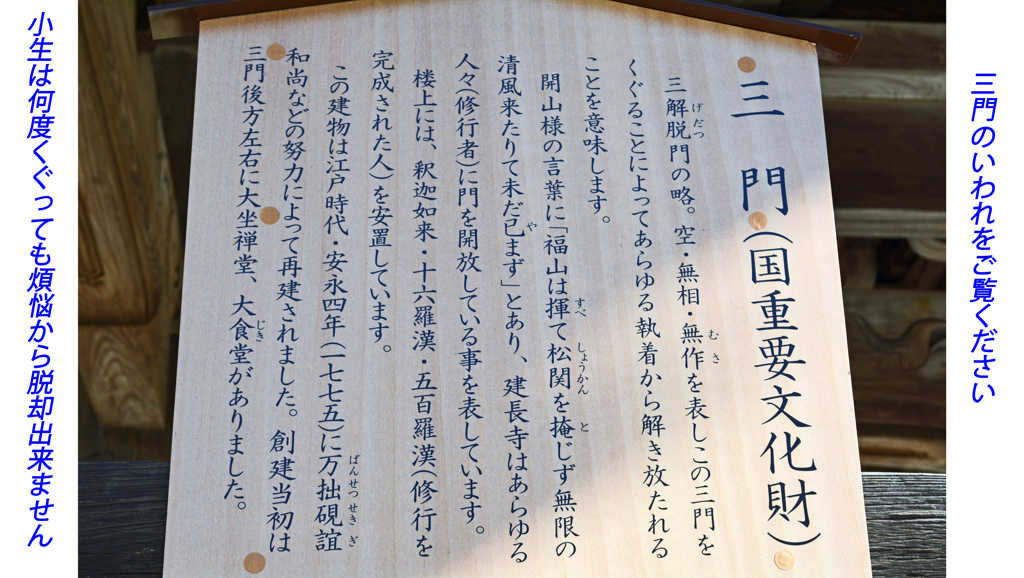 三門のいわれをご覧ください
三門(国重要文化財)
三解脱門の略。空・無相・無作を表しこの三門を
くぐることによってあらゆる執着から解き放たれる
ことを意味します。
開山様の言葉に「福山は揮て松関を掩じず無限の
清風来たりて未だ已まず」とあり、建長寺はあらゆる
人々(修行者)に門を開放している事を表しています。
楼上には、釈迦如来・十六羅漢・五百羅漢(修行を
完成された人)を安置しています。
この建物は江戸時代・安永四年(一七七五)に万拙碩誼
和尚などの努力によって再建されました。創建当初は
三門後方左右に大坐禅堂、大食堂がありました。
小生は何度くぐっても煩悩から脱却出来ません